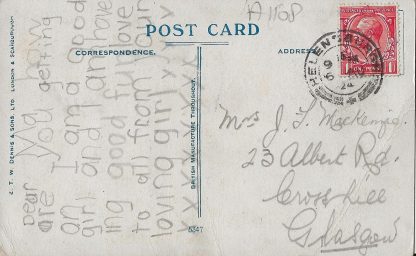 A1108
POST CARD
CORRESPONDENCE.
ADDRESS
Dear how
are You getting
on I am a good
girl and am hav
ing good love
to all from
loving girl x x
x x x x x x x
E. T. W. DENNIS & SONS, LTD. LONDON & SCARBOROUGH
BRITISH MANUFACTURE THROUGHOUT.
5347
HELENSBURGH
24
Mrs J. J. Mackenzie
23 Albert Rd.
Crosshill
Glasgow